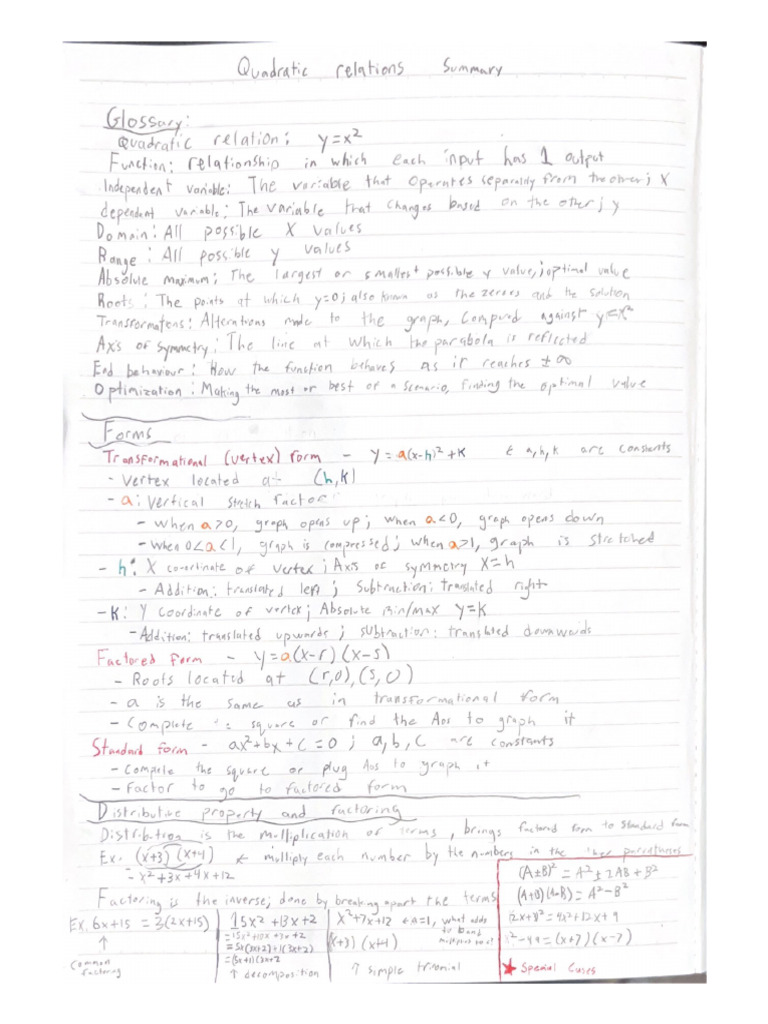 Quadratic relations Summary
Glossary:
Quadratic relation: y=x²
Function: relationship in which each input has 1 output
Independent variable: The variable that operates separately from the other; X
dependent variable: The variable that changes based on the other; y
Domain: All possible X values
Range: All possible y values
Absolute maximum: The largest or smallest possible y value; optimal value
Roots: The points at which y=0; also known as the zeroes and the solution
Alterations made to the graph, compared against y=x²
Axis of symmetry: The line at which the parabola is reflected
End behaviour: How the function behaves as it reaches ±∞
Optimization: Making the most or best of a scenario, finding the optimal value
Forms
Transformational (vertex) form - y=a(x-h)²+K a,h,k are constants
- Vertex located at (h,K)
- a: Vertical stretch factor
- When a>0, graph opens up; when a<0, graph opens down
- When 0<a<1, graph is compressed; when a>1, graph is stretched
- h: X coordinate of vertex; Axis of symmetry X=h
- Addition: translated left; Subtraction: translated right
- K: Y coordinate of vertex; Absolute min/max y=K
- Addition: translated upwards; subtraction: translated downwards
Factored form - y=a(x-r)(x-s)
- Roots located at (r,0),(s,0)
- a is the same as in transformational form
- Complete square or find the Aos to graph it
Standard form - ax²+bx+c=0; a,b,c are constants
- Complete the square or plug Aos to graph it
- Factor to go to factored form
Distributive property and factoring
Distribution is the multiplication of terms, brings factored form to standard form
Ex. (x+3)(x+4) ← multiply each number by the numbers in the parentheses
- x²+3x+4x+12
Factoring is the inverse; done by breaking apart the terms
Ex. 6x+15 = 3(2x+15)
↑
Common factoring
15x²+13x+2
=5x(3x+2)+1(3x+2)
↑ decomposition
x²+7x+12 ← a=1, what adds
(x+4)
↑ simple trinomial
(A±B)² = A²±2AB+B²
(A+B)(A-B) = A²-B²
(2x+3)²=4x²+12x+9
x²-49=(x+7)(x-7)
★ Special Cases